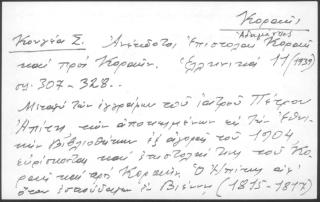 Κοραής
Αδαμάντιος
Κουγέα Σ. Ανέκδοτοι Επιστολαί Κοραή
και προς Κοραήν. Ελληνικά 11 (1939)
σσ. 307-328.
Μεταξύ των εγγράφων του ιατρού Πέτρου
Ηπίτη, των αποκειμένων εις την Εθνι-
κήν Βιβλιοθήκην εξ αγοράς του 1904,
ευρίσκονται και επιστολαί του Κο-
ραή και προς Κοραήν. Ο Ηπίτης
όταν εσπούδαζεν εν Βιέννη (1815-1817)